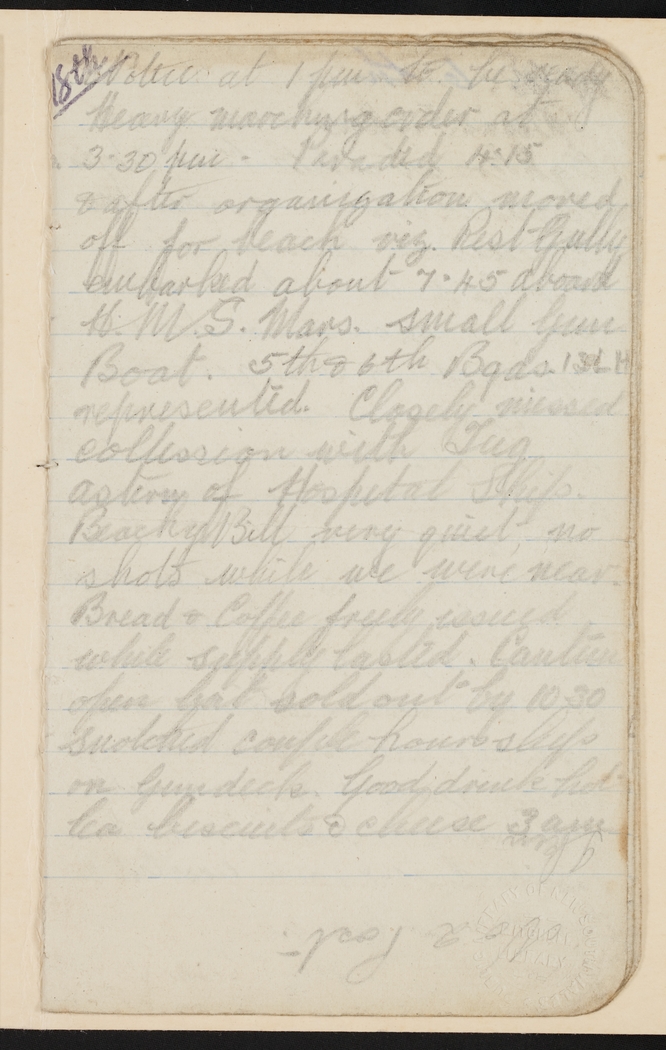 18th
Notice at 1 pm to be ready
Heavy marching order at
3.30 pm - Paraded 4.15
& after organization moved
off for beach viz. Rest Gully
embarked about 7.45 aboard
H.M.S. Mars. small Gun
Boat. 5th & 6th Bgds. 13 L H
represented. Closely missed
collission with Tug
astern of Hospital Ship.
Beachy Bill very quiet, no
shots while we were near.
Bread & Coffee freely issued
while supply lasted. Canteen
open but sold out by 10 30
snotched couple hours sleep
on Gundeck. Good drink hot
Co biscuits & cheese 3 am